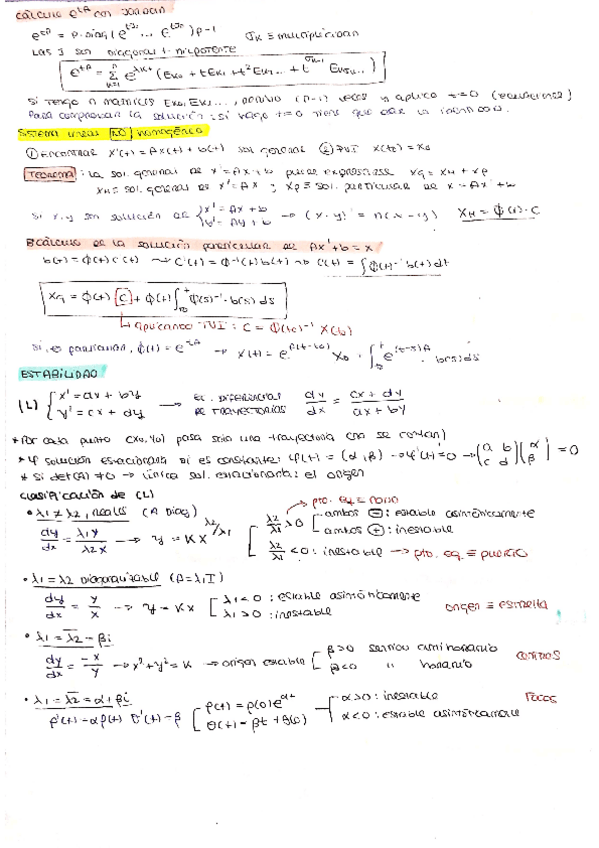 Cálculo e^tA con Jordan
e^tA = P · Diag(e^tJ1 ... e^tJn) P^-1   σk ≡ multiplicidad
Las J son diagonal + nilpotente
e^tA = Σ e^λkt (Ek0 + tEk1 + t²Ek2 ... + t^σk-1 Eσk...)
Si tengo n matrices Ek0, Ek1 ..., derivo (n-1) veces y aplico t=0 (ecuaciones)
Para comprobar la solución: si hago t=0 tiene que dar la identidad.
Sistema lineal NO homogéneo
① Encontrar x'(t) = Ax(t) + b(t) sol general ② PVI x(t0) = x0
Teorema: La sol. general de x' = Ax + b puede expresarse xG = xH + xP
xH ≡ sol. general de x' = Ax ; xP ≡ sol. particular de x' = Ax + b
Si x, y son solución de { x' = Ax + b y' = Ay + b → (x-y)' = A(x-y) xH = Φ(t) · C
Cálculo de la solución particular de Ax + b = x
b(t) = Φ(t) c'(t) → c'(t) = Φ^-1(t) b(t) → c(t) = ∫Φ(t)^-1 b(t) dt
xG = Φ(t) [C] + Φ(t) ∫ Φ(s)^-1 · b(s) ds
↳ Aplicando PVI : C = Φ(t0)^-1 x(t0)
si, en particular, Φ(t) = e^tA → x(t) = e^A(t-t0) x0 · ∫ e^(t-s)A · b(s) ds
ESTABILIDAD
(L) { x' = ax + by y' = cx + dy → EC. DIFERENCIAL DE TRAYECTORIAS dy/dx = cx + dy / ax + by
* Por cada punto (x0, y0) pasa solo una trayectoria (no se cortan)
* φ solución estacionaria si es constante: φ(t) = (α, β) → φ'(t) = 0 → (a b c d)(α β) = 0
* Si det(A) ≠ 0 → única sol. estacionaria: el origen
Clasificación de (L)
• λ1 ≠ λ2, reales (A Diag)
pto. eq ≡ nodo
dy/dx = λ2y/λ1x → y = Kx^λ2/λ1
λ2/λ1 > 0 ambos ⊖ : estable asintóticamente
ambos ⊕ : inestable
λ2/λ1 < 0 : inestable → pto. eq. ≡ puerto
• λ1 = λ2 Diagonalizable (A = λ1I)
dy/dx = y/x → y = Kx
λ1 < 0 : estable asintóticamente
λ1 > 0 : inestable
origen ≡ estrella
• λ1 = λ2 = βi
dy/dx = -x/y → x² + y² = K → origen estable
β > 0 sentido antihorario
β < 0 " horario
centros
• λ1 = λ2 = α + βi
ρ'(t) = αρ(t) θ'(t) = β
ρ(t) = ρ(0)e^αt
θ(t) = βt + θ(0)
α > 0 : inestable
α < 0 : estable asintóticamente
Focos